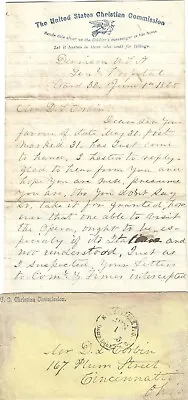 The United States Christian Commission
Sends this sheet as the Soldier's messenger to his home.
Let it hasten to those who wait for tidings.
Denison U.S.A
Gen'l Hospital
Ward 30, June 1st 1865
Dear Sir
favour of date May 30, Post
marked 31, has just come
to hand, I hasten to reply
glad to hear from you and
hope you are well, presume
you are, tho, you don't say
so, take it for granted, how-
ever that one able to visit
the Opera, ought to be, es-
pecially if its Italian and
not understood, Just as
I suspected, Your letters
to Com'y intercepted
U. S. Christian Commission.
Mr D. L. Corbin
167 Plum Street
Cincinnati
O.